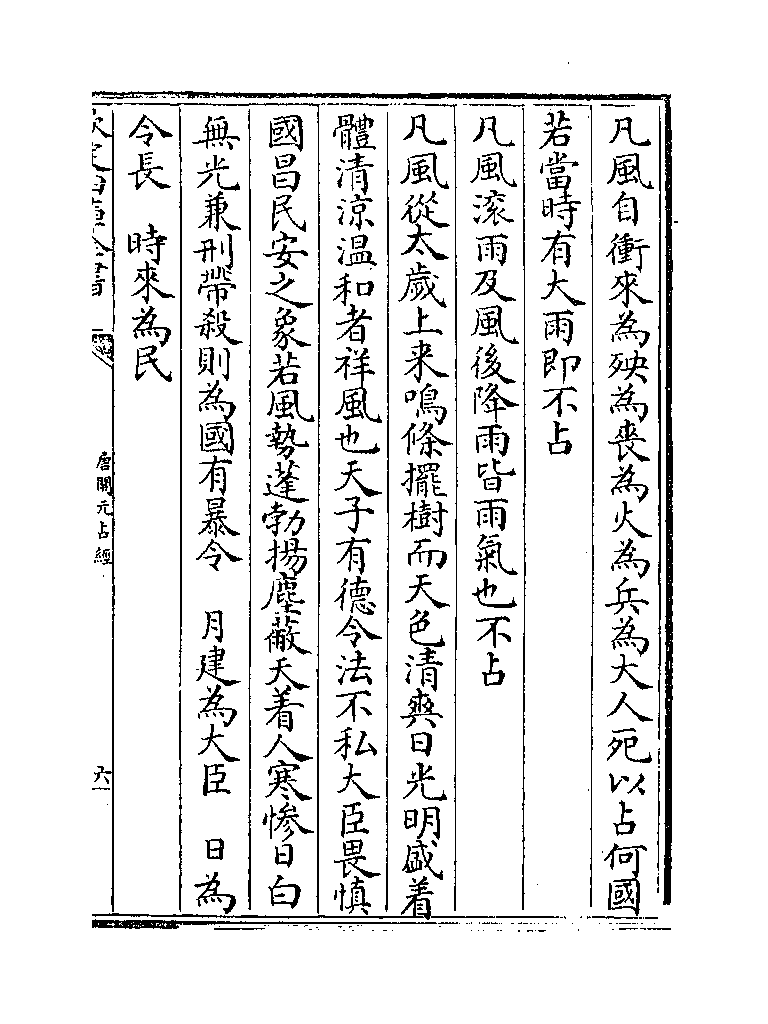 凡風自衝來為殃為喪為火為兵為大人死以占何國
若當時有大雨即不占
凡風滚雨及風後降雨皆雨氣也不占
凡風從太歲上来鳴條擺樹而天色清爽日光明盛着
體清凉温和者祥風也天子有德令法不私大臣畏慎
國昌民安之象若風勢蓬勃揚塵蔽天着人寒慘日白
無光兼刑帶殺則為國有暴令　月建為大臣　日為
令長　時來為民
欽定四庫全書
唐開元占經
六